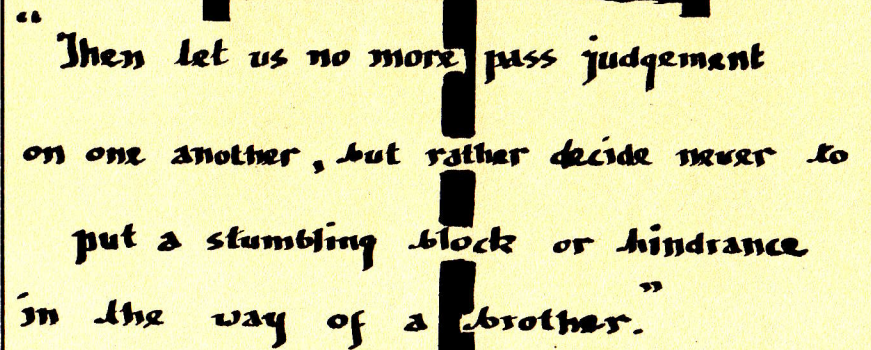 "Then let us no more pass judgement
on one another, but rather decide never to
put a stumbling block or hindrance
in the way of a brother."